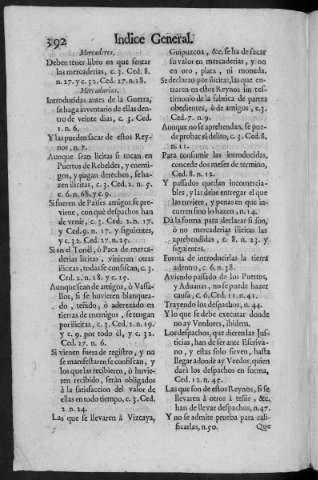 392 Indice General.
Mercaderes.
Deben tener libro en que sentar
las mercaderias, c. 3. Ced. 8.
n. 27. y c. 32. Ced. 17. n. 18.
Mercadurias.
Introducidas antes de la Guerra,
se haga inventario de ellas den-
tro de veinte dias, c. 3. Ced.
1. n. 6.
Y las puedan sacar de estos Rey-
nos, n. 7.
Aunque sean licitas si tocan en
Puertos de Rebeldes, y enemi-
gos, y pagan derechos, se ha-
zen ilicitas, c. 3. Ced. 2. n. 5.
c. 6. n. 68. y c. 9.
Si fueren de Países amigos se pre-
viene, con què despachos han
de venir, c. 3. Ced. 2. n. 17.
y Ced. 9. n. 17. y siguientes,
y c. 32. Ced. 17. n. 25.
Si en el Tonèl, ò Paca de merca-
derias licitas, vinieren otras
ilicitas, todas se confiscan, c. 3.
Ced. 2. n. 18. y c. 19.
Aunque sean de amigos, ò Vassa-
llos, si se huvieren blanquea-
do, teñido, ò aderezado en
tierras de enemigos, se tengan
por ilicitas, c. 3. Ced. 2. n. 19.
y c. 9. por todo èl, y c. 32.
Ced. 17. n. 6.
Si vienen fuera de registro, y no
se manifestaren se confiscan, y
los que las recibieren, ò huvie-
ren recibido, seràn obligados
à la satisfaccion del valor de
ellas en todo tiempo, c. 3. Ced.
2. n. 24.
Las que se llevaren à Vizcaya,
Guipuzcoa, &c. se ha de sacar
su valor en mercaderias, y no
en oro, plata, ni moneda.
Se declaran por ilicitas, las que en-
traren en estos Reynos sin tes-
timonio de la fabrica de partes
obedientes, ò de amigos, c. 3.
Ced. 7. n. 9.
Aunque no se aprehendan, se pue-
de probar el delito, c. 3. Ced. 8.
n. 11.
Para consumir las introducidas,
concede dos meses de termino,
Ced. 8. n. 12.
Y passados quedan incomercia-
bles, y las debe entregar el que
las tuviere, y penas en que in-
curren sino lo hazen, n. 14.
Dà la forma para declarar si son,
ò no mercaderias ilicitas las
aprehendidas, c. 8. n. 23. y
siguientes.
Forma de introducirlas la tierra
adentro, c. 6. n. 38.
Aviendo passado de los Puertos,
y Aduanas, no se puede hazer
causa, c. 6. Ced. 11. n. 41.
Trayendo los despachos, n. 44.
Y lo que se debe executar donde
no ay Veedores, ibidem.
Los despachos, que dieren las Jus-
ticias, han de ser ante Escriva-
no, y estas solo sirven, hasta
llegar adonde ay Veedor, quien
darà los despachos en forma,
Ced. 12. n. 45.
Las que son de estos Reynos, si se
llevaren à otros à teñir, &c.
han de llevar despachos, n. 47.
Y no se admite prueba para cali-
ficarlas, n. 50.
Que